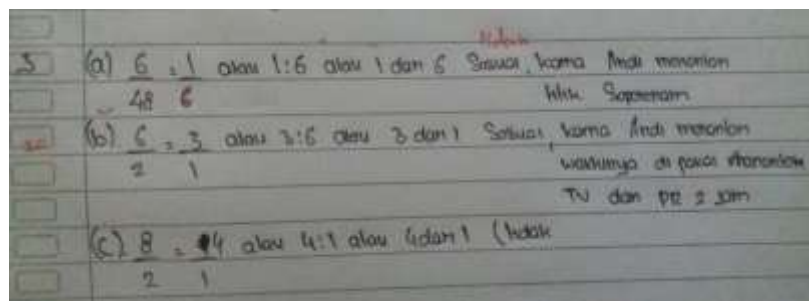 Tidak
5 (a) 6/48 = 1/6 atau 1:6 atau 1 dari 6 Sesuai, karna Andi menonton
titik Seperenam
(b) 6/2 = 3/1 atau 3:6 atau 3 dari 1 Sesuai, karna Andi menonton
waktunya di pakai menonton
TV dan PR 2 jam
(c) 8/2 = 4/1 atau 4:1 atau 4 dari 1 (tidak